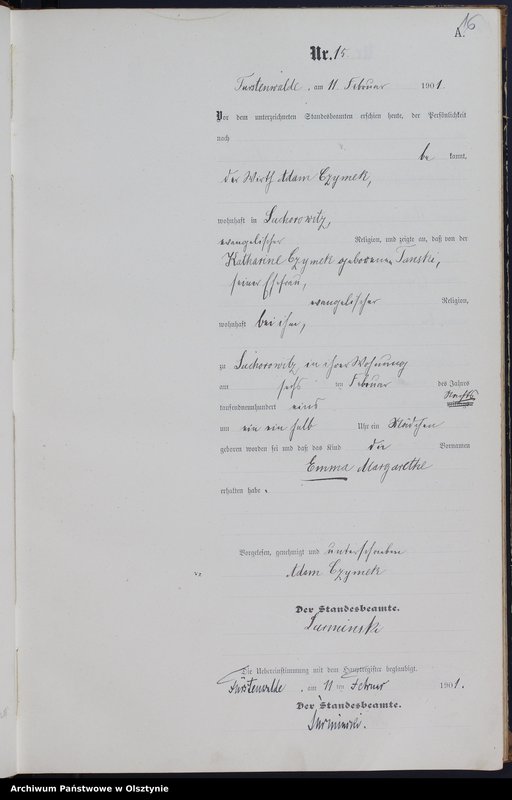 16
A.
Nr. 15
Fürstenwalde, am 11 Februar 1901.
Vor dem unterzeichneten Standesbeamten erschien heute, der Persönlichkeit
nach
be kannt,
der Wirth Adam Czymek,
wohnhaft in Suchorowitz,
evangelischer Religion, und zeigte an, daß von der
Katharine Czymek geborenen Tanski,
seiner Ehefrau,
evangelischer Religion,
wohnhaft bei ihm,
zu Suchorowitz in ihrer Wohnung
am sechs ten Februar des Jahres
tausendneunhundert eins Nachts
um ein ein halb Uhr ein Mädchen
geboren worden sei und daß das Kind die Vornamen
Emma Margarethe
erhalten habe.
Vorgelesen, genehmigt und unterschrieben
Adam Czymek
Der Standesbeamte.
Die Uebereinstimmung mit dem Hauptregister beglaubigt.
Fürstenwalde, am 11 ten Februar 1901.
Der Standesbeamte.
Archiwum Państwowe w Olsztynie